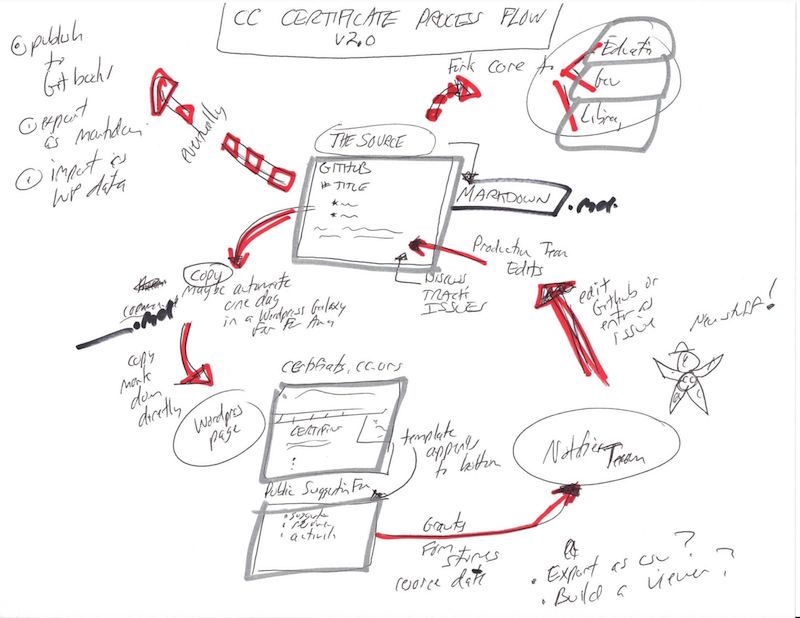 CC CERTIFICATE PROCESS FLOW
V2.0
publish
to
Gitbooks
export
as markdown
import as
WP data
eventually
Fork core to
Educatn
Gov
Library
THE SOURCE
GITHUB
* TITLE
MARKDOWN
.md
Production Team
Edits
DISCUSS
TRACK
ISSUES
copy
maybe automate
one day
in a Wordpress Galaxy
Far Far Away
.md
copy
mark
down
directly
edit
Github or
enter as
issue
New stuff!
Wordpress
page
certificates.cc.org
CERTIFICAT
template
appends
to bottom
Public Suggestion Form
• suggest
• resource
• activity
Gravity
Form
stores
source data
Team
• Export as csv?
• Build a viewer?